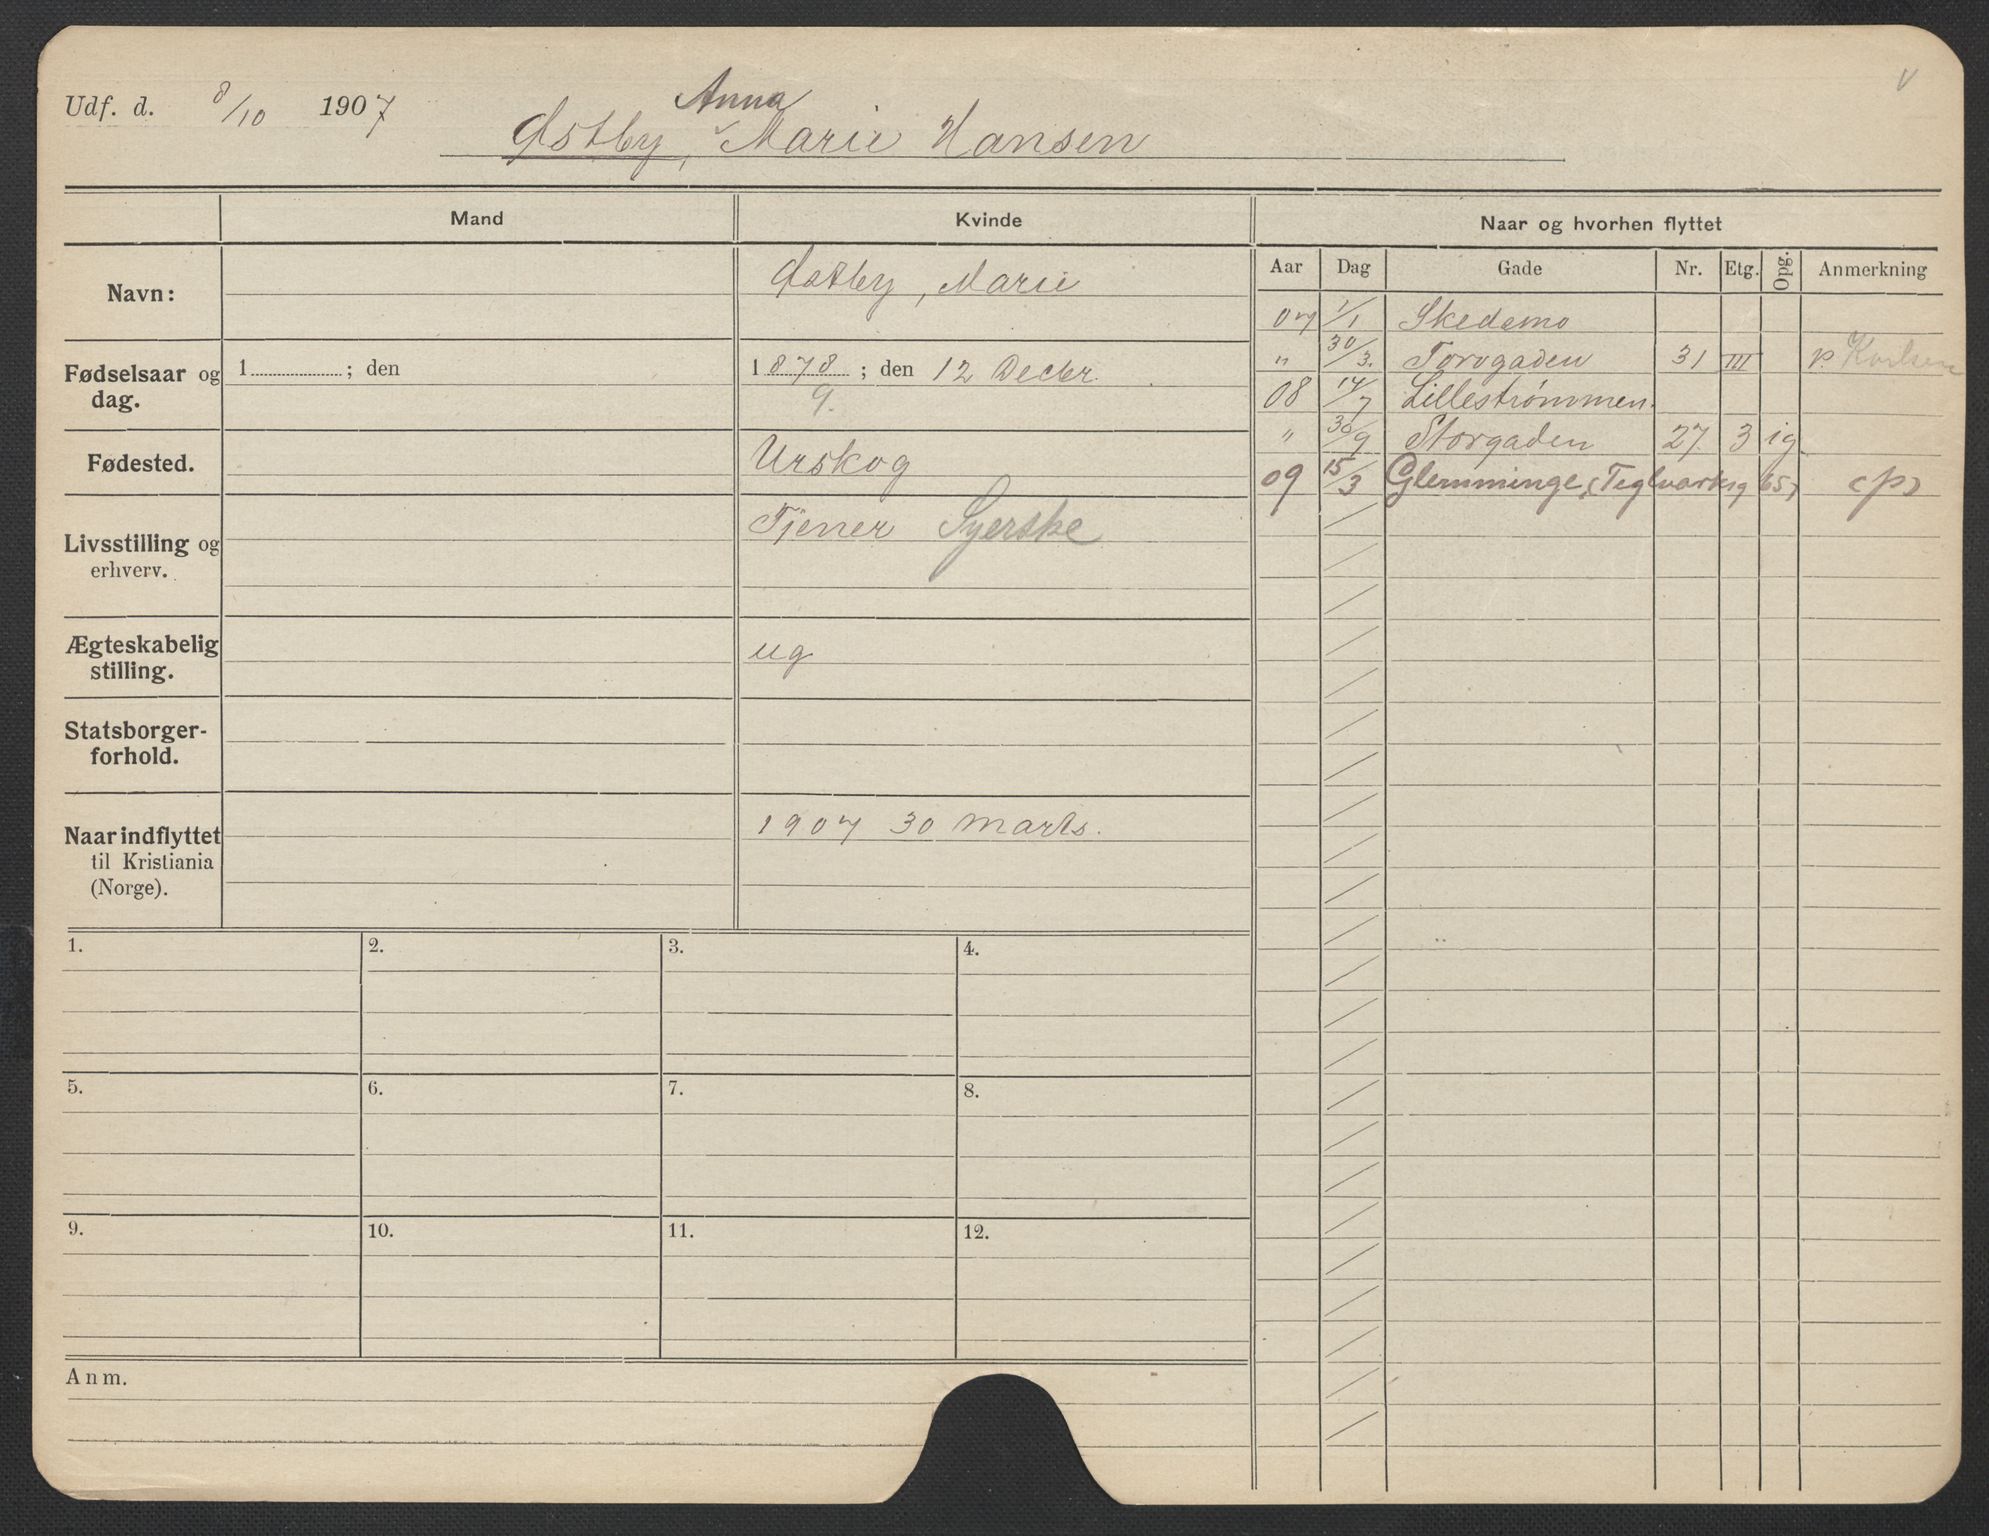 Udf. d. 8/10 1907
Anna
Østby, Marie Hansen
Mand
Kvinde
Naar og hvorhen flyttet
Aar Dag Gade Nr. Etg. Opg. Anmerkning
Navn:
Østby, Marie
Fødselsaar og dag.
1 ; den
1878 ; den 12 Decbr.
9.
Fødested.
Urskog
Livsstilling og erhverv.
Tjener Syerske
Ægteskabelig stilling.
ug
Statsborger-
forhold.
Naar indflyttet
til Kristiania
(Norge).
1907 30 Marts.
07 1/1 Skedsmo
" 30/3. Torvgaden 31 III p. Karlsen
08 14/7 Lillestrømmen.
" 30/9 Storgaden 27 3 ig.
09 15/3 Glemminge, (Teglvarksg 65) (p)
1. 2. 3. 4.
5. 6. 7. 8.
9. 10. 11. 12.
Anm.